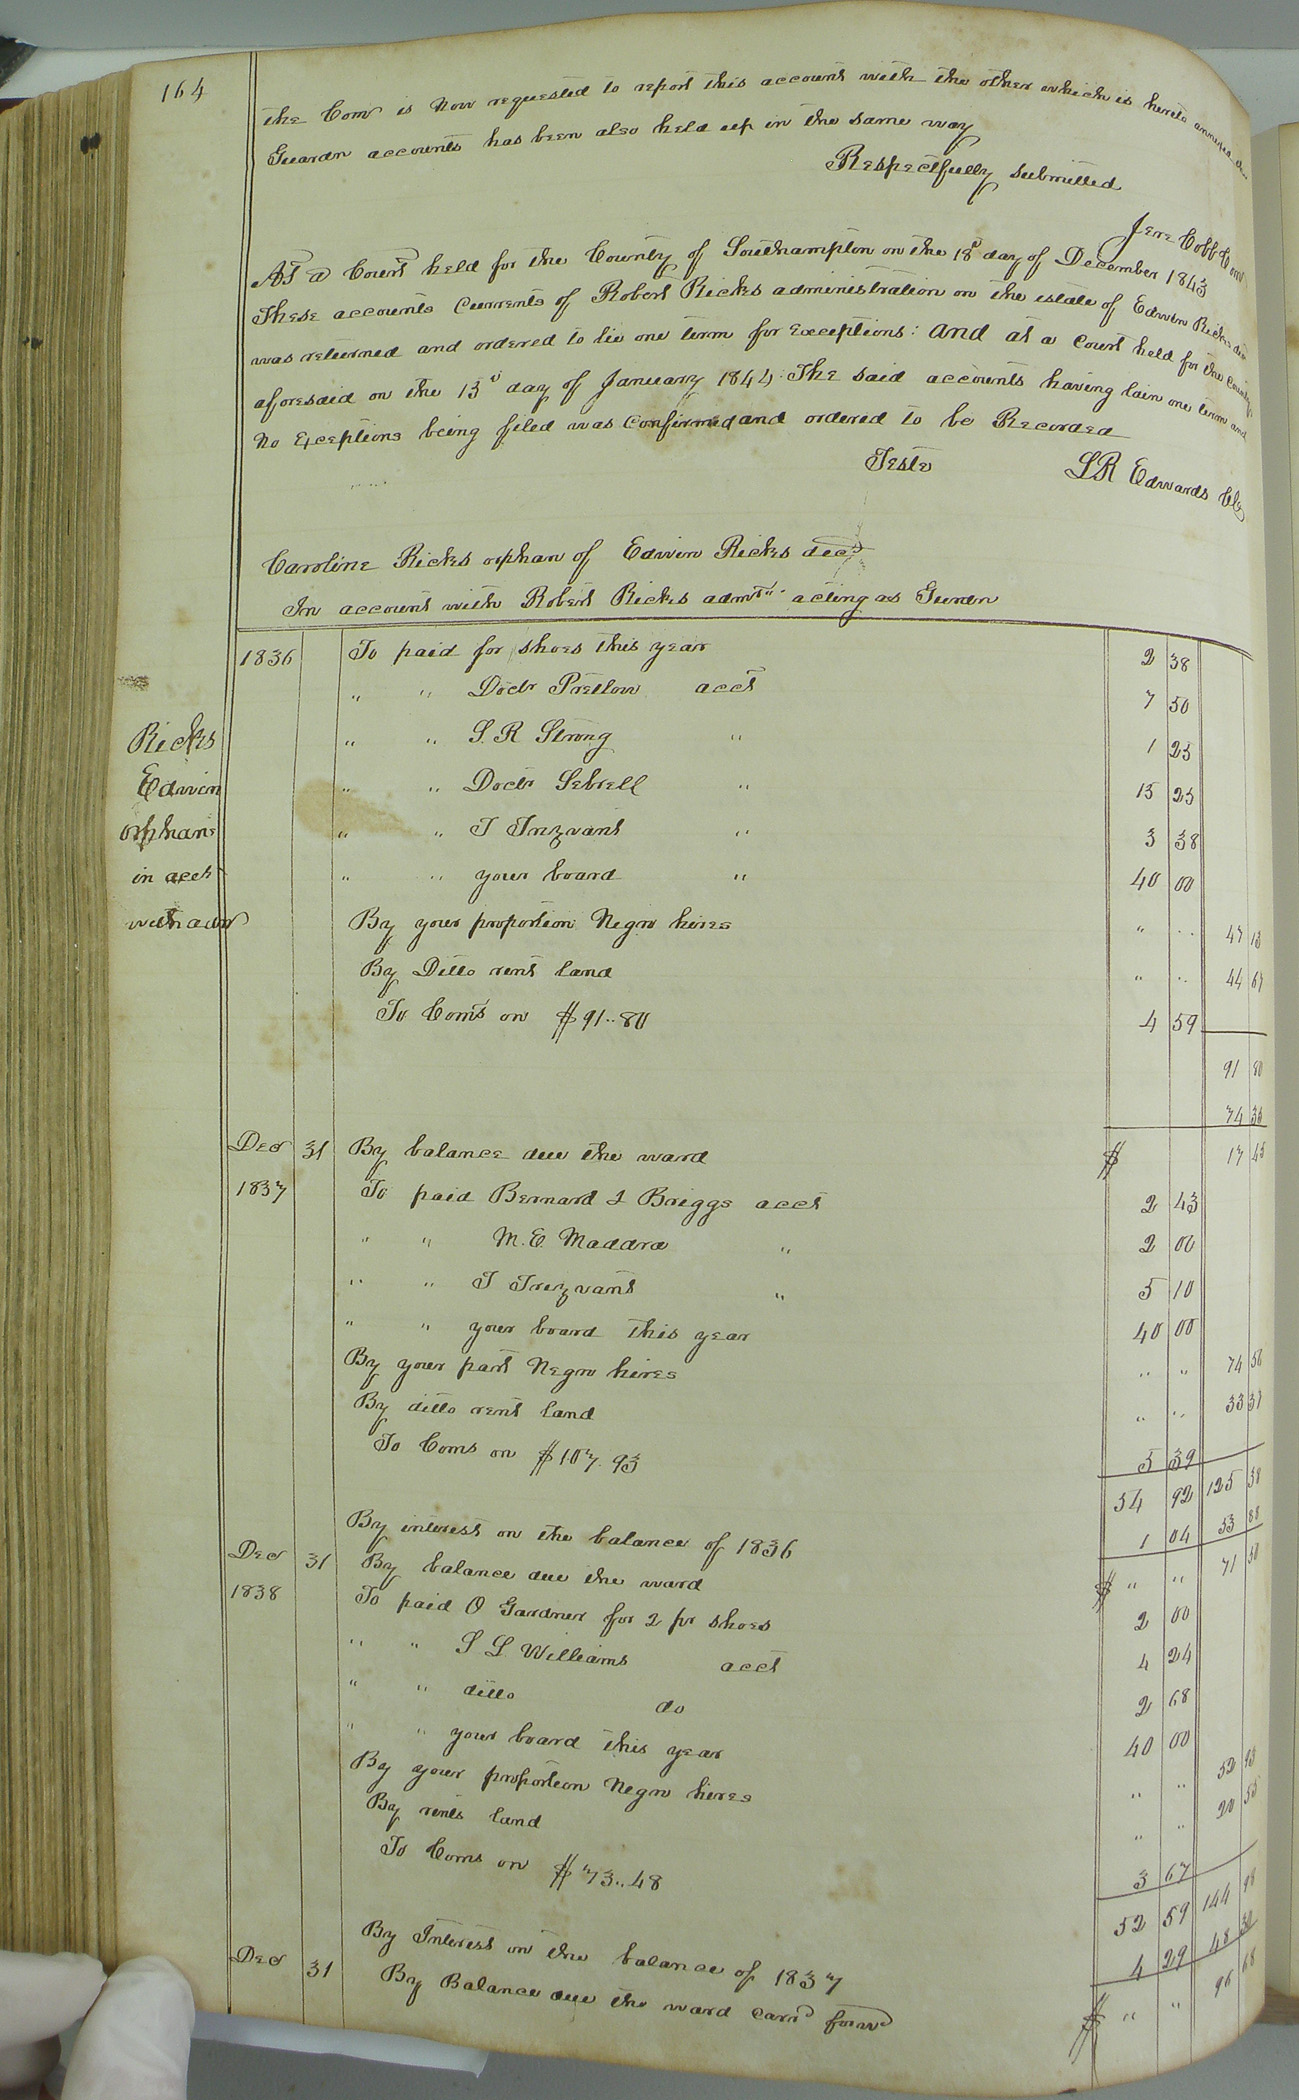 164
The Comr is now requested to report this account with the other which is hereto annexed the
Guardn accounts has been also held up in the same way
Respectfully submitted
Jere Cobb Comr
At a Court held for the County of Southampton on the 18th day of December 1843
These accounts Currents of Robert Ricks administration on the estate of Edwin Ricks decd
was returned and ordered to lie one term for exceptions: and at a Court held for the County
aforesaid on the 15th day of January 1844. The said accounts having lain one term and
no Exceptions being filed was Confirmed and ordered to be Recorded
Teste L R Edwards Clk
Caroline Ricks orphan of Edwin Ricks decd
In account with Robert Ricks admr acting as Guardn
Ricks
Edwin
orphans
in acct
with admr
1836 To paid for shoes this year 2 38
" " Doctr Pretlow acct 7 50
" " S. R Strong " 1 25
" " Doctr Sebrell " 15 25
" " T Trezvant " 3 38
" " your board " 40 00
By your proportion Negro hires " .. 47 13
By Ditto rent land " .. 44 67
To Coms on $91..80 4 59
91 80
74 35
Decr 31 By balance due the ward $ 17 45
1837 To paid Bernard L Briggs acct 2 43
" " M. E. Maddra " 2 00
" " T Trezvant " 5 10
" " your board this year 40 00
By your part Negro hires " " 74 56
By ditto rent land " " 33 37
To Coms on $107.93 5 39
54 92 125 38
By interest on the balance of 1836 1 04 53 88
Decr 31 By balance due the ward $ " " 71 50
1838 To paid O Gardner for 2 pr shoes 2 00
" " S L Williams acct 4 24
" " ditto do 2 68
" " your board this year 40 00
By your proportion Negro hires " " 52 93
By rents land " " 20 55
To Coms on $73..48 3 67
52 59 144 98
By Interest on the balance of 1837 4 29 48 30
Decr 31 By Balance due the ward card forwd $ " " 96 68